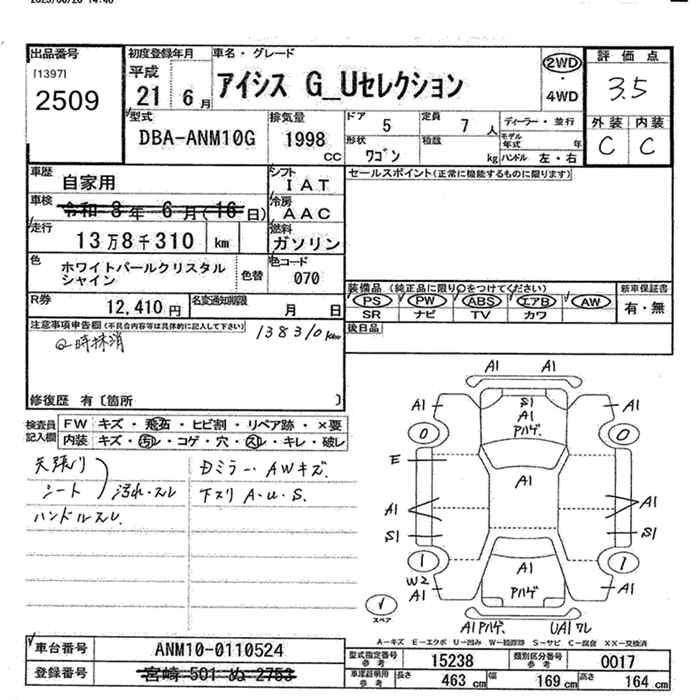 出品番号
[1397]
2509
初度登録年月
平成
21 6月
車名・グレード
アイシス G_Uセレクション
2WD
・
4WD
評価点
3.5
外装 内装
C C
型式
DBA-ANM10G
排気量
1998
CC
ドア
5
定員
7人
形状
ワゴン
積載
kg
ディーラー・並行
モデル年式 年
ハンドル 左・右
車歴
自家用
車検
令和 8年 6月(16日)
走行
13万8千310 km
色
ホワイトパールクリスタル
シャイン
色替
シフト
IAT
冷房
AAC
燃料
ガソリン
色コード
070
R券
12,410円
名変通知期限
月 日
セールスポイント(正常に機能するものに限ります)
装備品(純正品に限り○をつけてください)
PS PW ABS エアB AW
SR ナビ TV カワ
新車保証書
有・無
後日品
注意事項申告欄(不具合内容等は具体的に記入して下さい)
138310km
一時抹消
修復歴 有〔箇所 〕
検査員
記入欄
FW キズ・飛石・ヒビ割・リペア跡・×要
内装 キズ・汚レ・コゲ・穴・スレ・キレ・破レ
天張り
シート 汚れ・スレ
ハンドルスレ.
Dミラー・AWキズ.
下スリ A.U.S.
A1 A1
A1 S1 A1
A1
Pハゲ.
0 0
E
A1
A1 A1
S1 S1
1 1
W2
A1 A1 A1
Pハゲ
A1Pハゲ UA1ワレ
スペア
A-キズ E-エクボ U-凹み W-補修跡 S-サビ C-腐食 XX-交換済
車台番号
ANM10-0110524
登録番号
宮崎 501 ぬ 2753
型式指定番号
参考
15238
類別区分番号
参考
0017
車検証明用
参考
長さ
463 cm
幅
169 cm
高さ
164 cm